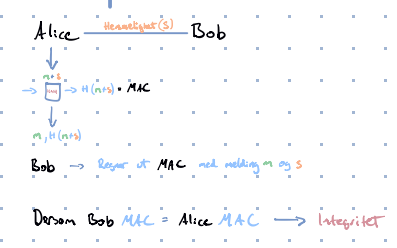 Alice Hemmelighet (S) Bob
m+s
→ → H(m+s) = MAC
m, H(m+s)
Bob → Regner ut MAC med melding m og s
Dersom Bob MAC = Alice MAC → Integritet